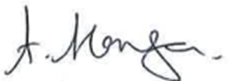 A. Monga.